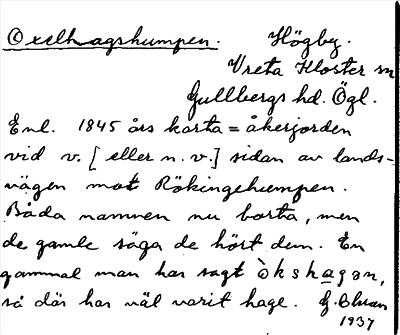 Oxelhagshumpen. Högby.
Vreta Kloster sn
Gullbergs hd. Ögl.
Enl. 1845 års karta = åkerjorden
vid v. [eller n. v.] sidan av lands-
vägen mot Rökingehumpen.
Båda namnen nu borta, men
de gamle säga de hört dem. En
gammal man har sagt òkshagan,
så där har väl varit hage. G.
1937